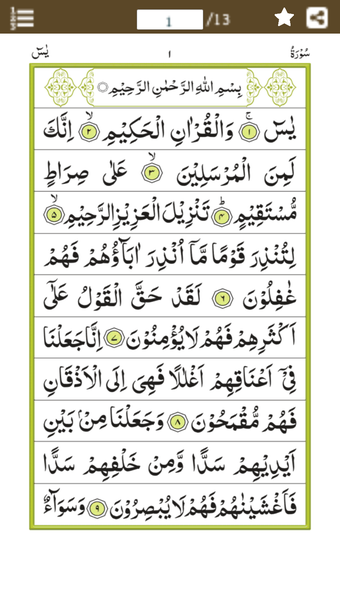 1 /13
سُوْرَةُ ١ يٰسٓ
بِسْمِ اللّٰهِ الرَّحْمٰنِ الرَّحِيْمِ
يٰسٓ ۚ ﴿١﴾ وَالْقُرْاٰنِ الْحَكِيْمِ ۙ ﴿٢﴾ اِنَّكَ
لَمِنَ الْمُرْسَلِيْنَ ۙ ﴿٣﴾ عَلٰى صِرَاطٍ
مُّسْتَقِيْمٍ ؕ ﴿٤﴾ تَنْزِيْلَ الْعَزِيْزِ الرَّحِيْمِ ۙ ﴿٥﴾
لِتُنْذِرَ قَوْمًا مَّاۤ اُنْذِرَ اٰبَآؤُهُمْ فَهُمْ
غٰفِلُوْنَ ﴿٦﴾ لَقَدْ حَقَّ الْقَوْلُ عَلٰۤى
اَكْثَرِهِمْ فَهُمْ لَا يُؤْمِنُوْنَ ﴿٧﴾ اِنَّا جَعَلْنَا
فِيْۤ اَعْنَاقِهِمْ اَغْلٰلًا فَهِيَ اِلَى الْاَذْقَانِ
فَهُمْ مُّقْمَحُوْنَ ﴿٨﴾ وَجَعَلْنَا مِنْۢ بَيْنِ
اَيْدِيْهِمْ سَدًّا وَّمِنْ خَلْفِهِمْ سَدًّا
فَاَغْشَيْنٰهُمْ فَهُمْ لَا يُبْصِرُوْنَ ﴿٩﴾ وَسَوَآءٌ